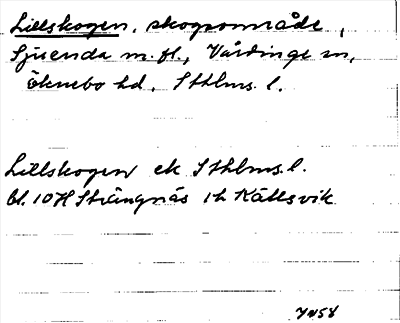 Lillskogen, skogsområde,
Sjuenda m.fl., Vårdinge sn,
Öknebo hd, Sthlms. l.
Lillskogen ek Sthlms. l.
bl. 10H Strängnäs 1h Kättsvik